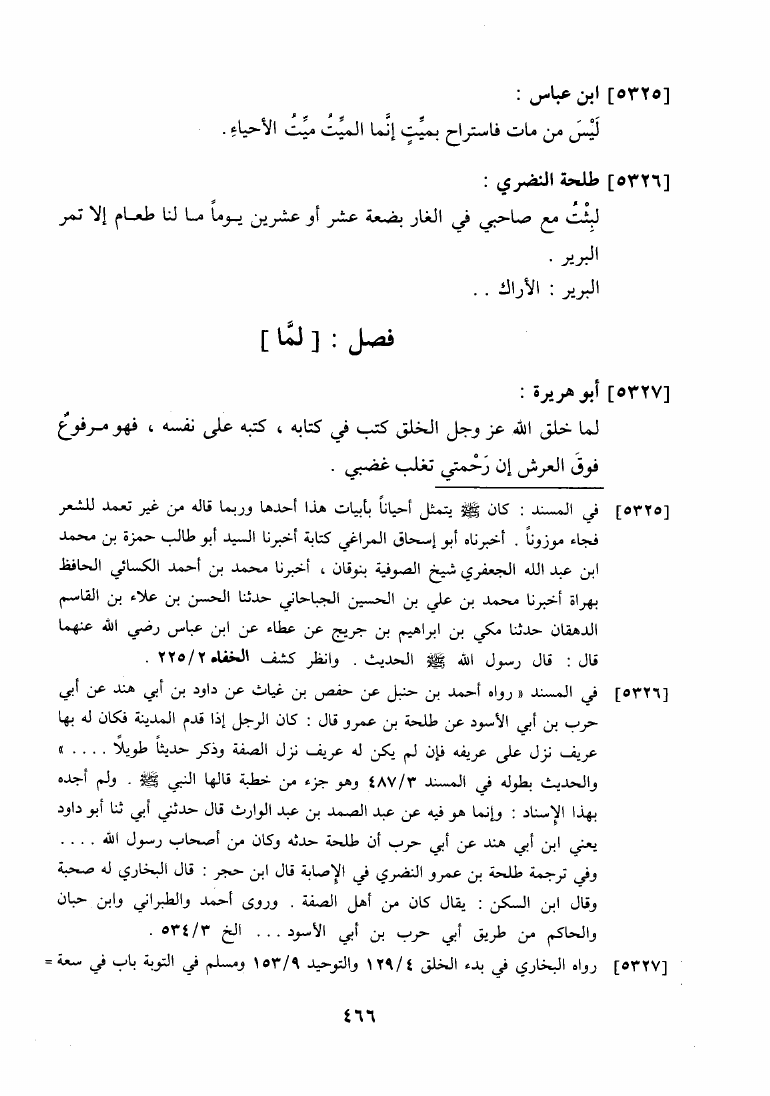 [٥٣٢٥] ابن عباس :
لَيْسَ من مات فاستراح بميِّتٍ إنَّما الميِّتُ ميِّتُ الأحياءِ .
[٥٣٢٦] طلحة النضري :
لبِثْتُ مع صاحبي في الغار بضعة عشر أو عشرين يوماً ما لنا طعام إلا تمر
البرير .
البرير : الأراك . .
فصل : [ لمَّا ]
[٥٣٢٧] أبو هريرة :
لما خلق الله عز وجل الخلق كتب في كتابه ، كتبه على نفسه ، فهو مرفوعٌ
فوقَ العرش إن رَحْمتي تغلب غضبي .
[٥٣٢٥] في المسند : كان ﷺ يتمثل أحياناً بأبيات هذا أحدها وربما قاله من غير تعمد للشعر
فجاء موزوناً . أخبرناه أبو إسحاق المراغي كتابة أخبرنا السيد أبو طالب حمزة بن محمد
ابن عبد الله الجعفري شيخ الصوفية بنوقان ، أخبرنا محمد بن أحمد الكسائي الحافظ
بهراة أخبرنا محمد بن علي بن الحسين الجباحاني حدثنا الحسن بن علاء بن القاسم
الدهقان حدثنا مكي بن ابراهيم بن جريج عن عطاء عن ابن عباس رضي الله عنهما
قال : قال رسول الله ﷺ الحديث . وانظر كشف الخفاء ٢/ ٢٢٥ .
[٥٣٢٦] في المسند « رواه أحمد بن حنبل عن حفص بن غياث عن داود بن أبي هند عن أبي
حرب بن أبي الأسود عن طلحة بن عمرو قال : كان الرجل إذا قدم المدينة فكان له بها
عريف نزل على عريفه فإن لم يكن له عريف نزل الصفة وذكر حديثاً طويلاً . . . . »
والحديث بطوله في المسند ٣/ ٤٨٧ وهو جزء من خطبة قالها النبي ﷺ . ولم أجده
بهذا الإسناد : وإنما هو فيه عن عبد الصمد بن عبد الوارث قال حدثني أبي ثنا أبو داود
يعني ابن أبي هند عن أبي حرب أن طلحة حدثه وكان من أصحاب رسول الله . . . .
وفي ترجمة طلحة بن عمرو النضري في الإصابة قال ابن حجر : قال البخاري له صحبة
وقال ابن السكن : يقال كان من أهل الصفة . وروى أحمد والطبراني وابن حبان
والحاكم من طريق أبي حرب بن أبي الأسود . . . الخ ٣/ ٥٣٤ .
[٥٣٢٧] رواه البخاري في بدء الخلق ٤/ ١٢٩ والتوحيد ٩/ ١٥٣ ومسلم في التوبة باب في سعة =
٤٦٦